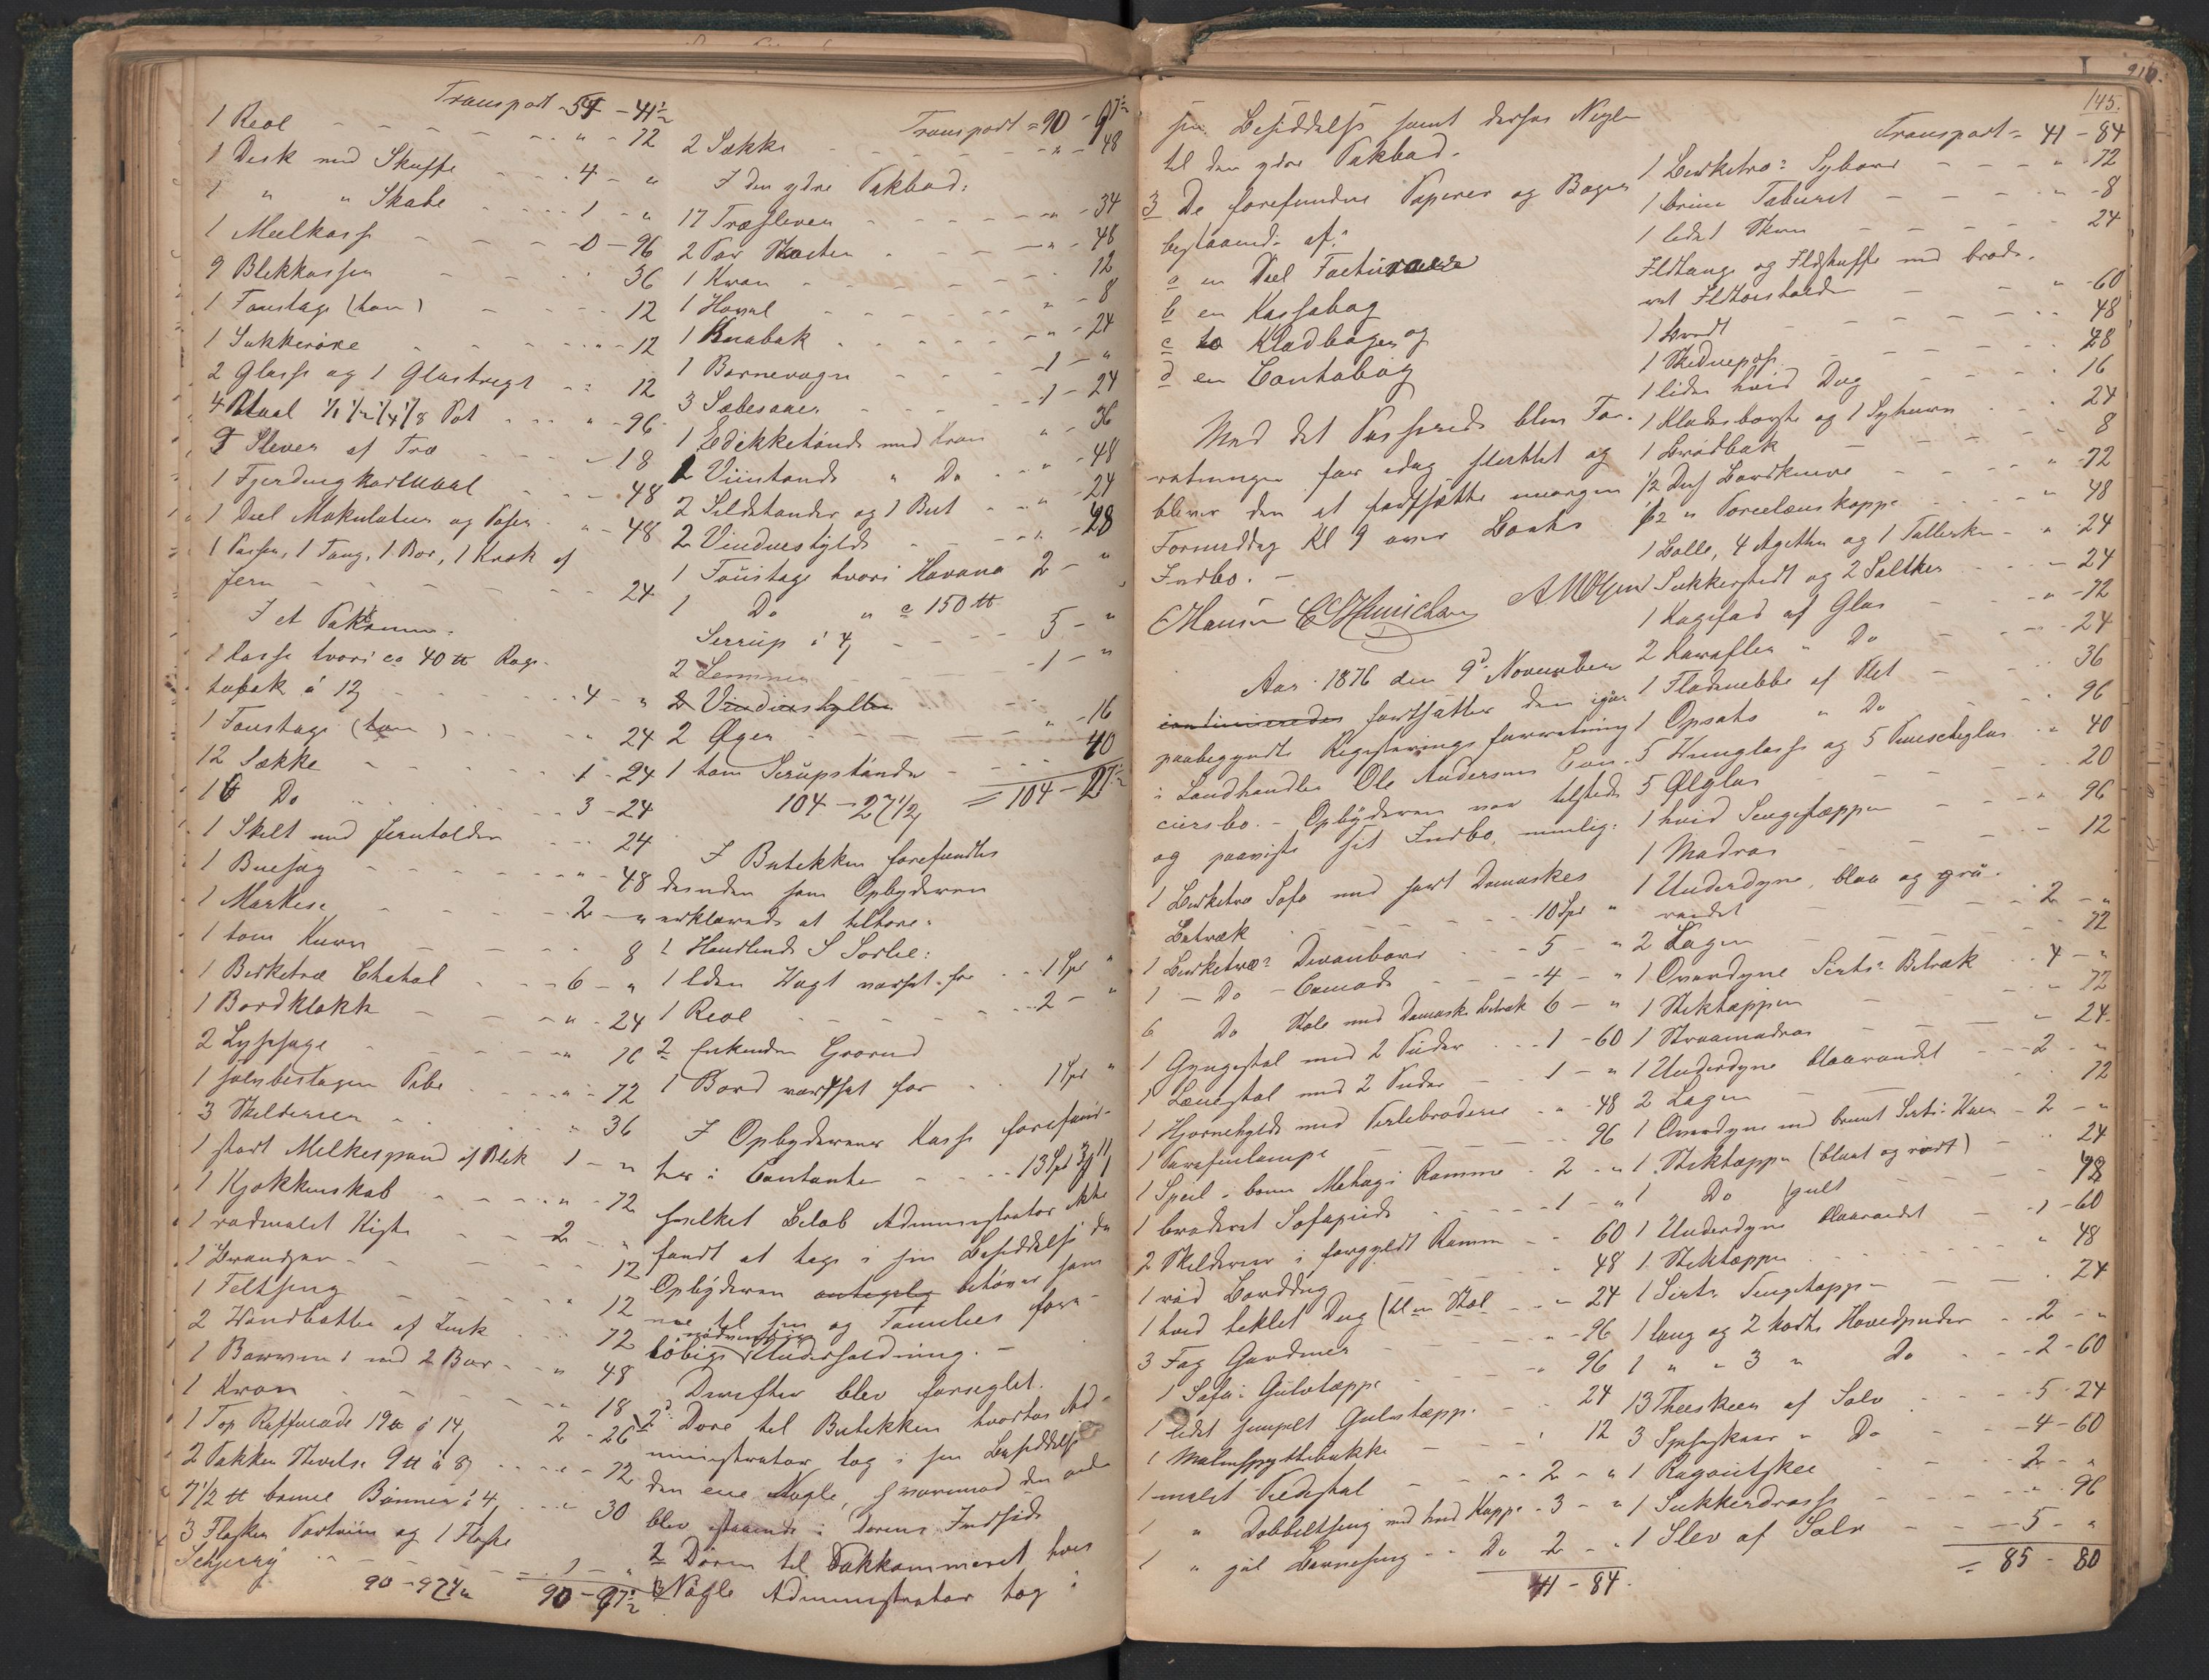 Transport 54 - 41½
1 Reol - - - " - 72
1 Disk med Skuffe - - 4 - "
1 " " Skabe - - 1 - "
1 Meelkasse - - 0 - 96
9 Blikkasser - - 36
1 Foustage (tom) - - 12
1 Sukkerøxe - - " - 12
2 Glasse og 1 Glastragt - - 12
4 Maal 1/1 1/2 1/4 1/8 Pot - - " - 96
9 Slever af Træ - - 18
1 Fjerdingkarmaal - - 48
1 Deel Makulatur og Poser - " - 48
1 Passer, 1 Tang, 1 Bor, 1 Krok af
Jern - - 24
I et Pakrum.
1 Kasse hvori ca 40 tt Røge-
tobak á 12 - - 4 - "
1 Foustage (tom) - - 24
12 Sække - - 1 - 24
16 Do - - 3 - 24
1 Skilt med Jernholder - - 24
1 Buesag - - " - 48
1 Markise - - 2 - "
1 tom Kurv - - 8
1 Birketræ Chatol - - 6 - "
1 Bordklokke - - " - 24
2 Lyssage - - " 16
1 sølvbeslagen Pibe - - " - 72
3 Skilderier - - " 36
1 stort Melkespand af Blik 1 - "
1 Kjøkkenskab - - " - 72
1 rødmalet Kiste - - 2 - "
1 Brandspan - - 12
1 Feltseng - - " 12
2 Vandbøtter af Zink - - 72
1 Barvinn: med 2 Bør - - " 48
1 Kran - - " 18
1 Top Raffinade 19 tt á 14 2 - 26
2 Pakker Stivelse 9 tt á 8 - - " - 72
7½ tt brune Bønner á 4 - - " 30
3 Flasker Portviin og 1 Flaske
Scherry - - = 1 - "
90 - 97½ 90 - 97½
Transport = 90 - 97½
2 Sække - - " - 48
I den ydre Pakbod:
17 Træslever - - " - 34
2 Par Skoster - - " - 48
1 Kran - - 12
1 Høvel - - " - 8
1 Knabak - - " - 24
1 Barnevogn - - 1 - "
3 Sæbesaaer - - 1 - 24
1 Edikketønde med Kran " - 36
2 Viintønde " Do - - " - 48
2 Sildetønder og 1 But - - " 24
2 Vindueshylde - - " 28
1 Foustage hvori Havana 2 - "
1 Do " c 150 tt
Serrup á 4 - - 5 - "
2 Lemmer - - 1 - "
2 Vindueshylder
2 Øger - - " - 16
1 tom Serupstønde - - 40
104 - 27½ = 104 - 27½
I Butikken forefandtes
desuden som Opbyderen
erklærede at tilhøre:
1 Handlende S Sørlie:
1 liden Vægt værdsat for - - 1 Spd "
1 Reol - - 2 - "
2 Enkenden Grorud
1 Bord værdsat for - - 1 Spd "
I Opbyderens Kasse forefand-
tes i Contanter - - 13 Spd 3 11
hvilket Beløb Administrator ikke
fandt at tage i sin Besiddelse da
Opbyderen antagelig behøver som
me til sin og Families fore-
løbige nødvendige Underholdning. -
Derefter blev forseglet.
Døre til Butikken hvortil Ad-
ministrator tog i sin Besiddelse
den ene Nøgle, hvorimod den anden
blev staaende i Dørens Indside
2 Døren til Pakkammeret hvis
Nøgle Administrator tog i
910.
145.
sin Besiddelse samt dersom Nøglen
til den ydre Pakbod.
3 De forefundne Papirer og Bøger
bestaaende af:
a en Deel Facturaer
b en Kassabog
c to Kladbøger og
d en Contobog
Med det Passerede blev For-
retningen for idag sluttet og
bliver den at fortsætte imorgen
Formiddag Kl 9 over Boets
Indbo. -
CHansen CSHenrichsen AMOlsen
Aar 1876 den 9d November
continueredes fortsattes den igaar
paabegyndte Registreringsforretning
i Landhandler Ole Andersens Con-
cursbo. - Opbyderen var tilstede
og paaviste sit Indbo, nemlig:
1 Birketræ Sofa med sort Damaskes
Betræk - - 10 Spd "
1 Birketræ: Divanbord - - 5 - "
1 - Do - Comode - - 4 - "
6 Do Stole med Damaske Betræk 6 - "
1 Gyngestol med 2 Puder - - 1 - 60
1 Lænestol med 2 Puder - - 1 - "
1 Hjørnehylde med Perlebroderie - - 48
1 Parafinlampe - - 96
1 Speil i brun Mahogi Ramme - 2 - "
1 broderet Sofapude - - 1 - "
2 Skilderier i forgyldt Ramme - - 60
1 rød Borddug - - 48
1 hvid heklet Dug (til en Stol - - 24
3 Fag Gardiner - - " - 96
1 Sofa: Gulvtæppe - - " 96
1 lidet simpelt Gulvtæppe - - 24
1 Malmspyttebakke - - 12
1 malet Piedestal - - 2 - "
1 " Dobbeltseng med hvid Kappe - 3 - "
1 " gul Barneseng - - Do 2 - "
41 - 84.
Transport = 41 - 84
1 Birketræ: Sybord - - " - 72
1 brun Taburet - - " - 8
1 lidet Skrin - - 24
Ildtang og Ildskuffe med brode-
ret Ildtørsholder - - " - 60
1 Bredt - - 48
1 Skidnepose - - 28
1 liden hvid Dug - - 16
1 Kladesbørste og 1 Syskurv - - 24
1 Brødbak - - 8
½ Dus Bordknive - - " - 72
12 " Porcelænskoppe - - " 48
1 Bolle, 4 Agetter og 1 Tallerken - " 24
Sukkerstedt og 2 Saltkar - - 24
1 Kagefad af Glas - - " - 72
2 Karafler " Do - - 24
1 Flødenebbe af Plet - - 36
1 Opsats " Do - - 96
5 Viinglasse og 5 Puncheglas - " 40
5 Ølglas - - 20
1 hvid Sengetæppe - - " 96
1 Madras - - 12
1 Underdyne, blaa og graa-
randet - - 2 - "
2 Lagen - - 72
1 Overdyne Serts: Betræk - - 4 - "
1 Stiktæppe - - " 72
1 Straamadras - - 24.
1 Underdyne blaarandet - - 2 - "
2 Lagen - - 72
1 Overdyne med bruunt Serts: Vaar - 2 - "
1 Stiktæppe (blaat og rødt) - - 24
1 Do (gult - - 48
1 Underdyne blaarandet - - 1 - 60
1 Stiktæppe - - " 48
1 Serts Sengetæppe - - 24
1 lang og 2 korte Hovedpuder - - 2 - "
1 " " 3 " Do - - 2 - 60
13 Theeskeer af Sølv - - 5 - 24
3 Spiseskeer " Do - - 4 - 60
1 Ragoutskee - - 2 - "
1 Sukkerdaase - - " 96
1 Slev af Sølv - - 5 - "
= 85 - 80